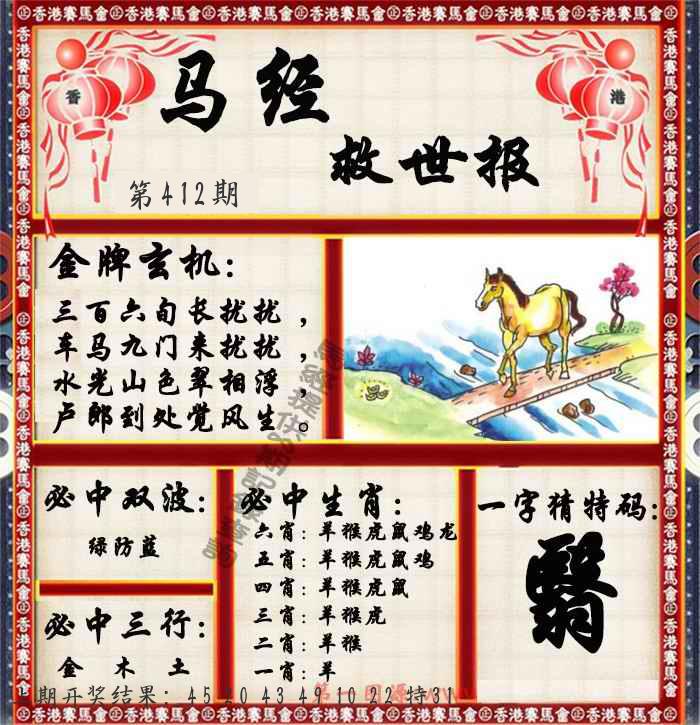 香港賽馬會
香 港
马经
救世报
第412期
金牌玄机：
三百六旬长扰扰，
车马九门来扰扰，
水光山色翠相浮，
卢郎到处觉风生。
必中双波：
绿防蓝
必中三行：
金 木 土
必中生肖：
六肖：羊猴虎鼠鸡龙
五肖：羊猴虎鼠鸡
四肖：羊猴虎鼠
三肖：羊猴虎
二肖：羊猴
一肖：羊
一字猜特码：
翳
期开奖结果：45 20 43 49 10 22 特31